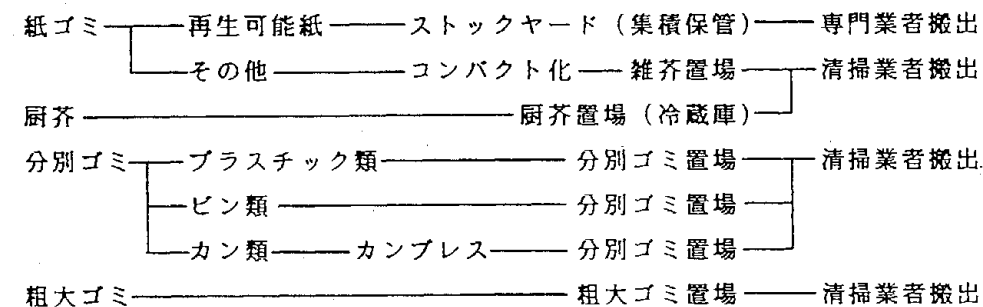 紙ゴミ 再生可能紙 ストックヤード(集積保管) 専門業者搬出
その他 コンパクト化 雑芥置場 清掃業者搬出
厨芥 厨芥置場(冷蔵庫)
分別ゴミ プラスチック類 分別ゴミ置場 清掃業者搬出
ビン類 分別ゴミ置場
カン類 カンプレス 分別ゴミ置場
粗大ゴミ 粗大ゴミ置場 清掃業者搬出